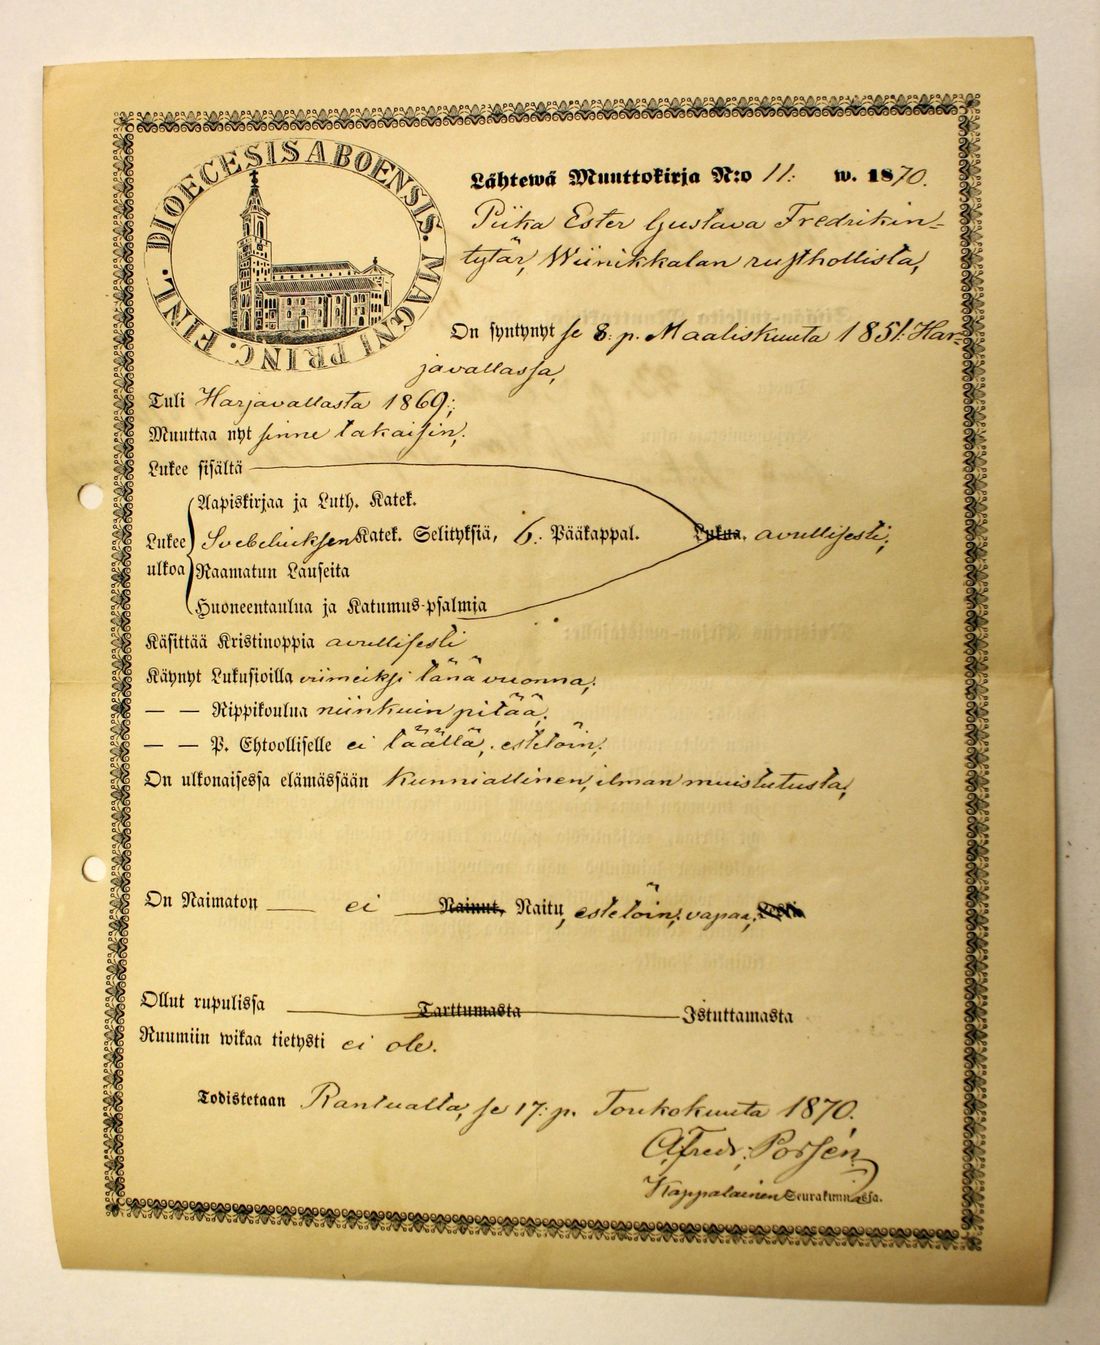 DIOECESIS ABOENSIS. MAGNI PRINC. FINL.
Lähtewä Muuttokirja N:o 11: w. 1870.
Piika Ester Gustava Fredrikin-
tytär, Wiinikkalan rusthollista,
On syntynyt se 8: p. Maaliskuuta 1851: Har-
javallassa,
Tuli Harjavallasta 1869;
Muuttaa nyt sinne takaisin;
Lukee sisältä
Aapiskirjaa ja Luth. Katek.
Lukee ulkoa Svebeliuksen Katek. Selityksiä, 6: Pääkappal. Lukua, avullisesti;
Raamatun Lauseita
Huoneentaulua ja Katumus-psalmia
Käsittää Kristinoppia avullisesti
Käynyt Lukusioilla viimeiksi tänä vuonna;
— — Rippikoulua niinkuin pitää;
— — P. Ehtoolliselle ei täällä, estetöin;
On ulkonaisessa elämässään kunniallinen, ilman muistutusta,
On Naimaton — ei — Nainut, Naitu, estetöin; vapaa;
Ollut rupulissa — Tarttumasta — Istuttamasta
Ruumiin wikaa tietysti ei ole.
Todistetaan Rantualta, se 17: p. Toukokuuta 1870.
Alfredr. Porsén
Kappalainen Seurakunnassa.